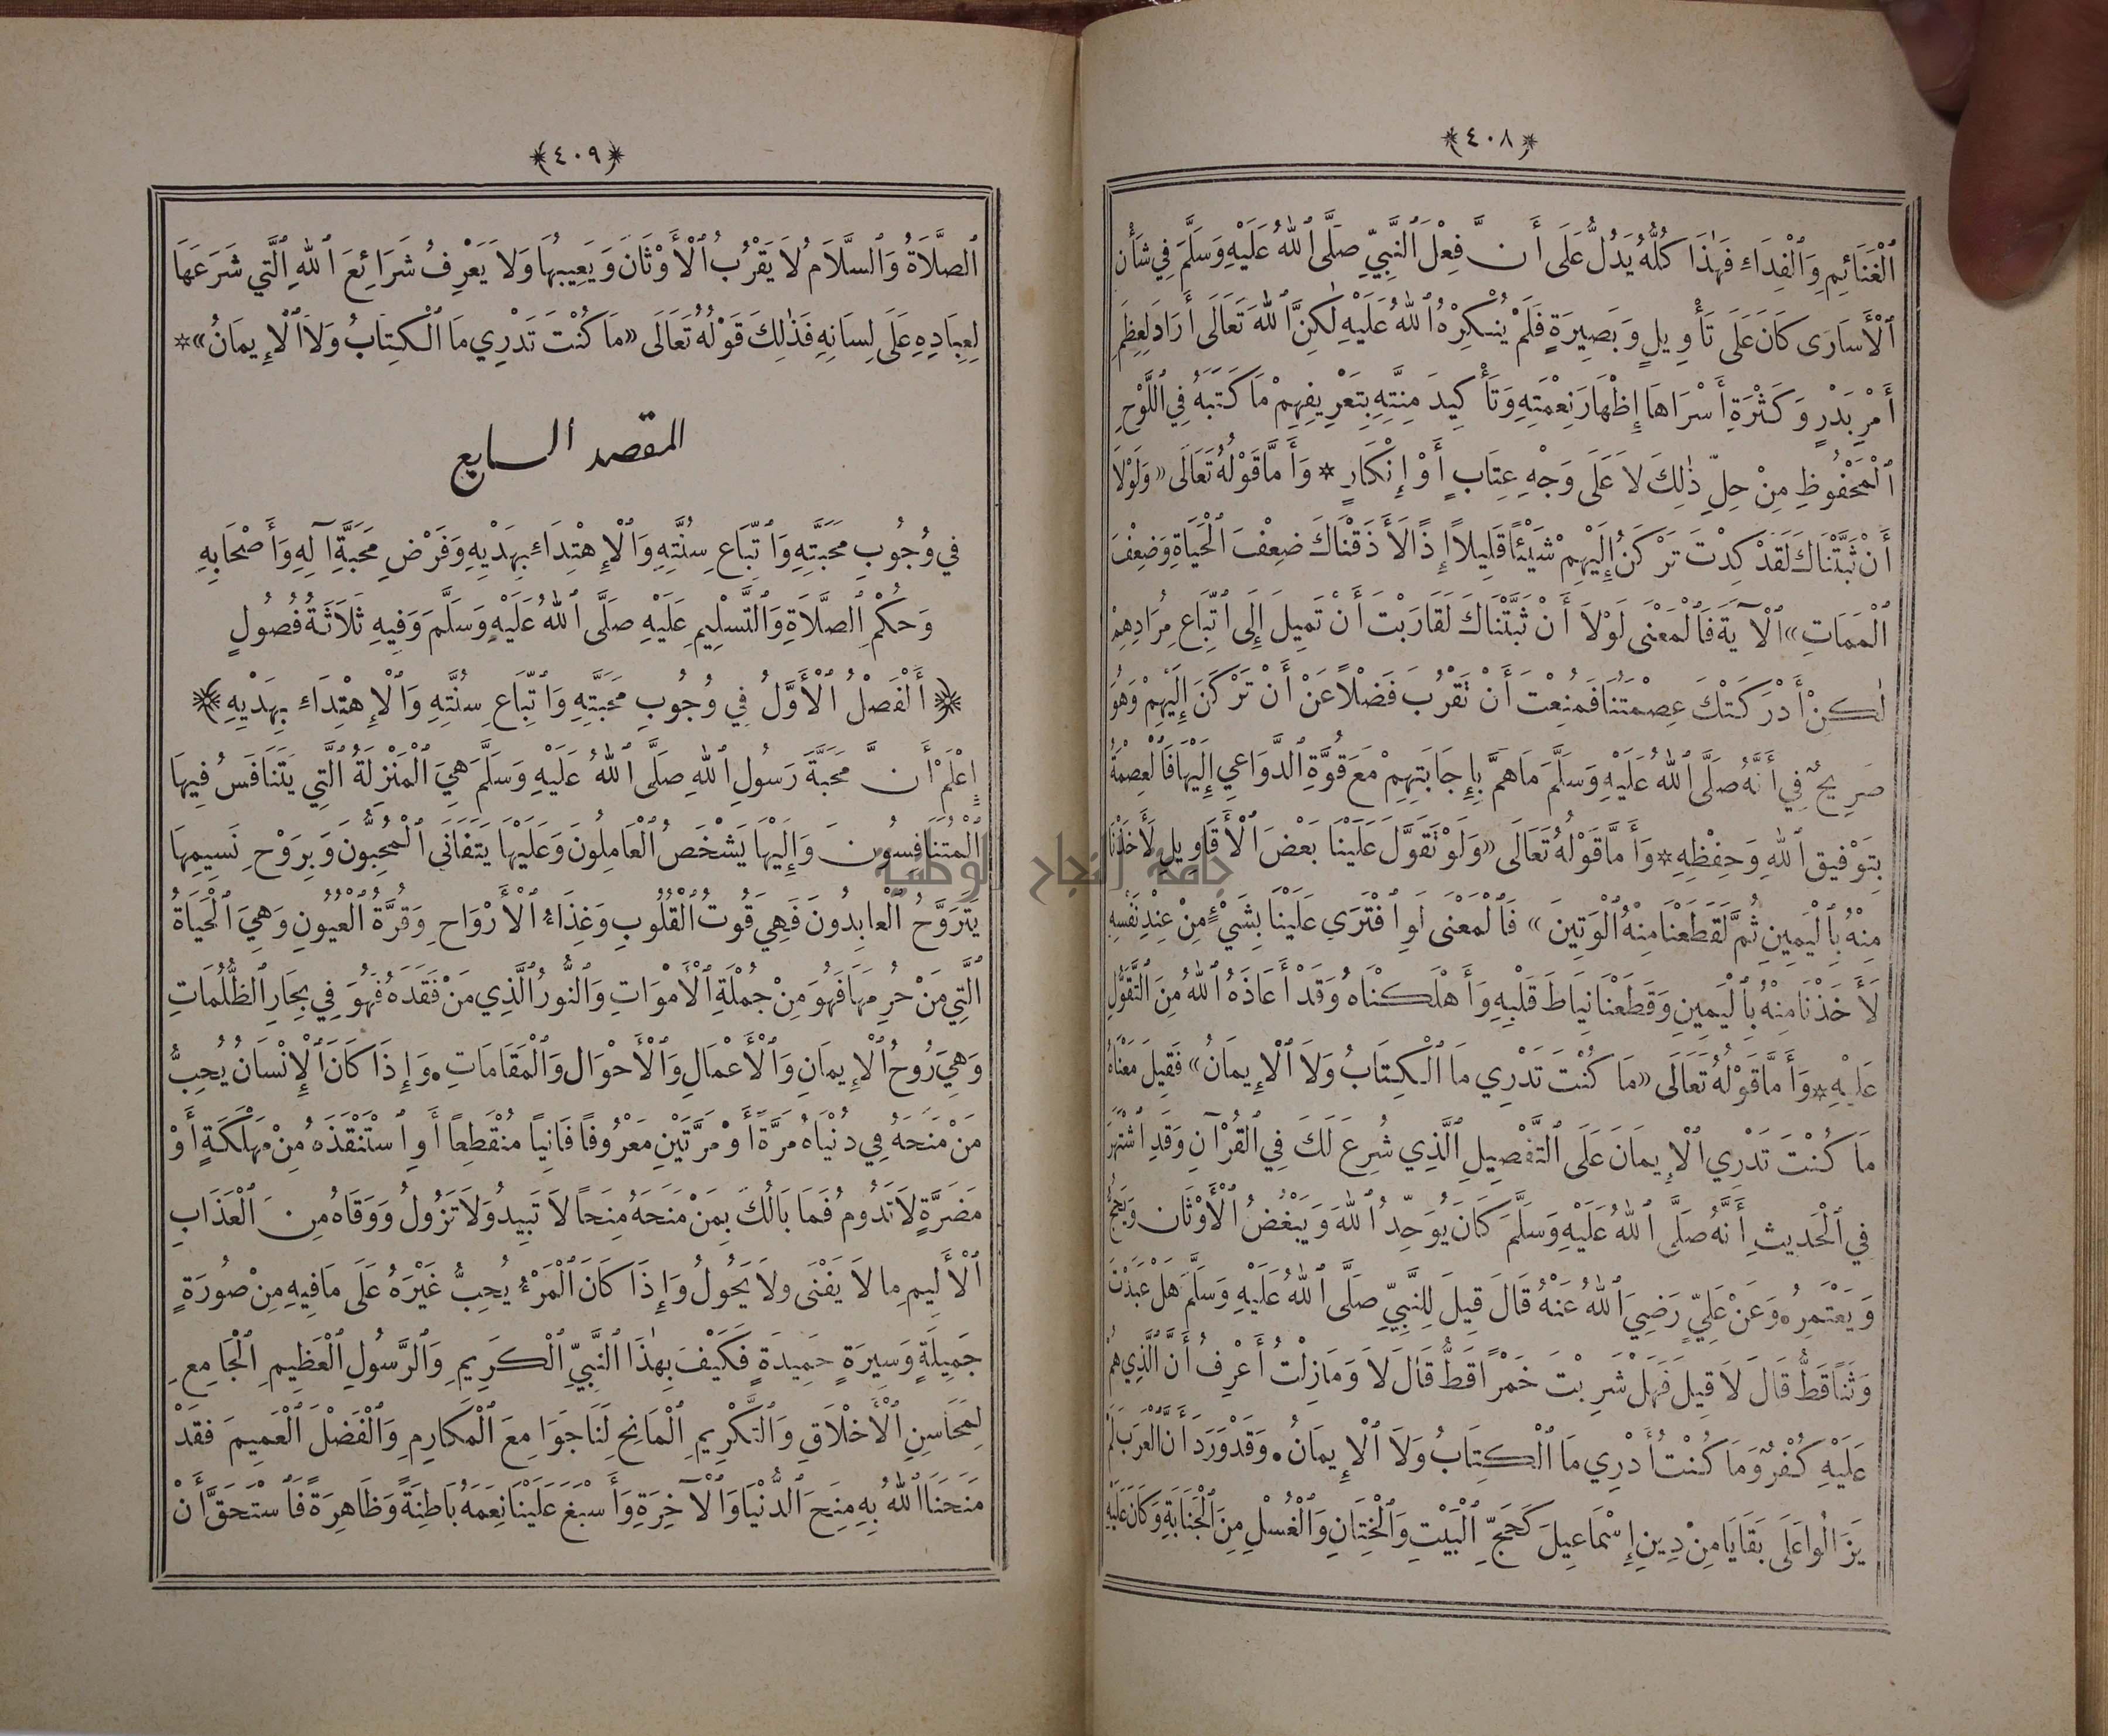 ﴿٤٠٨﴾
ٱلْغَنَائِمِ وَٱلْفِدَاءِ فَهٰذَا كُلُّهُ يَدُلُّ عَلَى أَنَّ فِعْلَ ٱلنَّبِيِّ صَلَّى ٱللهُ عَلَيْهِ وَسَلَّمَ فِي شَأْنِ
ٱلْأَسَارَى كَانَ عَلَى تَأْوِيلٍ وَبَصِيرَةٍ فَلَمْ يُنْكِرْهُ ٱللهُ عَلَيْهِ لٰكِنَّ ٱللهَ تَعَالَى أَرَادَ لِعِظَمِ
أَمْرِ بَدْرٍ وَكَثْرَةِ أَسْرَاهَا إِظْهَارَ نِعْمَتِهِ وَتَأْكِيدَ مِنَّتِهِ بِتَعْرِيفِهِمْ مَا كَتَبَهُ فِي ٱللَّوْحِ
ٱلْمَحْفُوظِ مِنْ حِلِّ ذٰلِكَ لَا عَلَى وَجْهِ عِتَابٍ أَوْ إِنْكَارٍ * وَأَمَّا قَوْلُهُ تَعَالَى «وَلَوْلَا
أَنْ ثَبَّتْنَاكَ لَقَدْ كِدْتَ تَرْكَنُ إِلَيْهِمْ شَيْئًا قَلِيلاً إِذًا لَأَذَقْنَاكَ ضِعْفَ ٱلْحَيَاةِ وَضِعْفَ
ٱلْمَمَاتِ» ٱلْآيَةَ فَٱلْمَعْنَى لَوْلَا أَنْ ثَبَّتْنَاكَ لَقَارَبْتَ أَنْ تَمِيلَ إِلَى ٱتِّبَاعِ مُرَادِهِمْ
لٰكِنْ أَدْرَكَتْكَ عِصْمَتُنَا فَمُنِعْتَ أَنْ تَقْرُبَ فَضْلاً عَنْ أَنْ تَرْكَنَ إِلَيْهِمْ وَهُوَ
صَرِيحٌ فِي أَنَّهُ صَلَّى ٱللهُ عَلَيْهِ وَسَلَّمَ مَا هَمَّ بِإِجَابَتِهِمْ مَعَ قُوَّةِ ٱلدَّوَاعِي إِلَيْهَا فَٱلْعِصْمَةُ
بِتَوْفِيقِ ٱللهِ وَحِفْظِهِ * وَأَمَّا قَوْلُهُ تَعَالَى «وَلَوْ تَقَوَّلَ عَلَيْنَا بَعْضَ ٱلْأَقَاوِيلِ لَأَخَذْنَا
مِنْهُ بِٱلْيَمِينِ ثُمَّ لَقَطَعْنَا مِنْهُ ٱلْوَتِينَ» فَٱلْمَعْنَى لَوِ ٱفْتَرَى عَلَيْنَا بِشَيْءٍ مِنْ عِنْدِ نَفْسِهِ
لَأَخَذْنَا مِنْهُ بِٱلْيَمِينِ وَقَطَعْنَا نِيَاطَ قَلْبِهِ وَأَهْلَكْنَاهُ وَقَدْ أَعَاذَهُ ٱللهُ مِنَ ٱلتَّقَوُّلِ
عَلَيْهِ * وَأَمَّا قَوْلُهُ تَعَالَى «مَا كُنْتَ تَدْرِي مَا ٱلْكِتَابُ وَلَا ٱلْإِيمَانُ» فَقِيلَ مَعْنَاهُ
مَا كُنْتَ تَدْرِي ٱلْإِيمَانَ عَلَى ٱلتَّفْصِيلِ ٱلَّذِي شُرِعَ لَكَ فِي ٱلْقُرْآنِ وَقَدِ ٱشْتَهَرَ
فِي ٱلْحَدِيثِ أَنَّهُ صَلَّى ٱللهُ عَلَيْهِ وَسَلَّمَ كَانَ يُوَحِّدُ ٱللهَ وَيَبْغُضُ ٱلْأَوْثَانَ وَيَحُجُّ
وَيَعْتَمِرُ. وَعَنْ عَلِيٍّ رَضِيَ ٱللهُ عَنْهُ قَالَ قِيلَ لِلنَّبِيِّ صَلَّى ٱللهُ عَلَيْهِ وَسَلَّمَ هَلْ عَبَدْتَ
وَثَنًا قَطُّ قَالَ لَا قِيلَ فَهَلْ شَرِبْتَ خَمْرًا قَطُّ قَالَ لَا وَمَا زِلْتُ أَعْرِفُ أَنَّ ٱلَّذِي هُمْ
عَلَيْهِ كُفْرٌ وَمَا كُنْتُ أَدْرِي مَا ٱلْكِتَابُ وَلَا ٱلْإِيمَانُ. وَقَدْ وَرَدَ أَنَّ ٱلْعَرَبَ لَمْ
يَزَالُوا عَلَى بَقَايَا مِنْ دِينِ إِسْمَاعِيلَ كَحَجِّ ٱلْبَيْتِ وَٱلْخِتَانِ وَٱلْغُسْلِ مِنَ ٱلْجَنَابَةِ وَكَانَ عَلَيْهِ
﴿٤٠٩﴾
ٱلصَّلَاةُ وَٱلسَّلَامُ لَا يَقْرُبُ ٱلْأَوْثَانَ وَيَعِيبُهَا وَلَا يَعْرِفُ شَرَائِعَ ٱللهِ ٱلَّتِي شَرَعَهَا
لِعِبَادِهِ عَلَى لِسَانِهِ فَذٰلِكَ قَوْلُهُ تَعَالَى «مَا كُنْتَ تَدْرِي مَا ٱلْكِتَابُ وَلَا ٱلْإِيمَانُ» *
المقصد السابع
فِي وُجُوبِ مَحَبَّتِهِ وَٱتِّبَاعِ سُنَّتِهِ وَٱلْإِهْتِدَاءِ بِهَدْيِهِ وَفَرْضِ مَحَبَّةِ آلِهِ وَأَصْحَابِهِ
وَحُكْمِ ٱلصَّلَاةِ وَٱلتَّسْلِيمِ عَلَيْهِ صَلَّى ٱللهُ عَلَيْهِ وَسَلَّمَ وَفِيهِ ثَلَاثَةُ فُصُولٍ
﴿أَلْفَصْلُ ٱلْأَوَّلُ فِي وُجُوبِ مَحَبَّتِهِ وَٱتِّبَاعِ سُنَّتِهِ وَٱلْإِهْتِدَاءِ بِهَدْيِهِ﴾
إِعْلَمْ أَنَّ مَحَبَّةَ رَسُولِ ٱللهِ صَلَّى ٱللهُ عَلَيْهِ وَسَلَّمَ هِيَ ٱلْمَنْزِلَةُ ٱلَّتِي يَتَنَافَسُ فِيهَا
ٱلْمُتَنَافِسُونَ وَإِلَيْهَا يَشْخَصُ ٱلْعَامِلُونَ وَعَلَيْهَا يَتَفَانَى ٱلْمُحِبُّونَ وَبِرَوْحِ نَسِيمِهَا
يَتَرَوَّحُ ٱلْعَابِدُونَ فَهِيَ قُوتُ ٱلْقُلُوبِ وَغِذَاءُ ٱلْأَرْوَاحِ وَقُرَّةُ ٱلْعُيُونِ وَهِيَ ٱلْحَيَاةُ
ٱلَّتِي مَنْ حُرِمَهَا فَهُوَ مِنْ جُمْلَةِ ٱلْأَمْوَاتِ وَٱلنُّورُ ٱلَّذِي مَنْ فَقَدَهُ فَهُوَ فِي بِحَارِ ٱلظُّلُمَاتِ
وَهِيَ رُوحُ ٱلْإِيمَانِ وَٱلْأَعْمَالِ وَٱلْأَحْوَالِ وَٱلْمَقَامَاتِ. وَإِذَا كَانَ ٱلْإِنْسَانُ يُحِبُّ
مَنْ مَنَحَهُ فِي دُنْيَاهُ مَرَّةً أَوْ مَرَّتَيْنِ مَعْرُوفًا فَانِيًا مُنْقَطِعًا أَوِ ٱسْتَنْقَذَهُ مِنْ مَهْلَكَةٍ أَوْ
مَضَرَّةٍ لَا تَدُومُ فَمَا بَالُكَ بِمَنْ مَنَحَهُ مِنَحًا لَا تَبِيدُ وَلَا تَزُولُ وَوَقَاهُ مِنَ ٱلْعَذَابِ
ٱلْأَلِيمِ مَا لَا يَفْنَى وَلَا يَحُولُ وَإِذَا كَانَ ٱلْمَرْءُ يُحِبُّ غَيْرَهُ عَلَى مَا فِيهِ مِنْ صُورَةٍ
جَمِيلَةٍ وَسِيرَةٍ حَمِيدَةٍ فَكَيْفَ بِهٰذَا ٱلنَّبِيِّ ٱلْكَرِيمِ وَٱلرَّسُولِ ٱلْعَظِيمِ ٱلْجَامِعِ
لِمَحَاسِنِ ٱلْأَخْلَاقِ وَٱلتَّكْرِيمِ ٱلْمَانِحِ لَنَا جَوَامِعَ ٱلْمَكَارِمِ وَٱلْفَضْلَ ٱلْعَمِيمَ فَقَدْ
مَنَحَنَا ٱللهُ بِهِ مِنَحَ ٱلدُّنْيَا وَٱلْآخِرَةِ وَأَسْبَغَ عَلَيْنَا نِعَمَهُ بَاطِنَةً وَظَاهِرَةً فَٱسْتَحَقَّ أَنْ
جامعة النجاح الوطنية